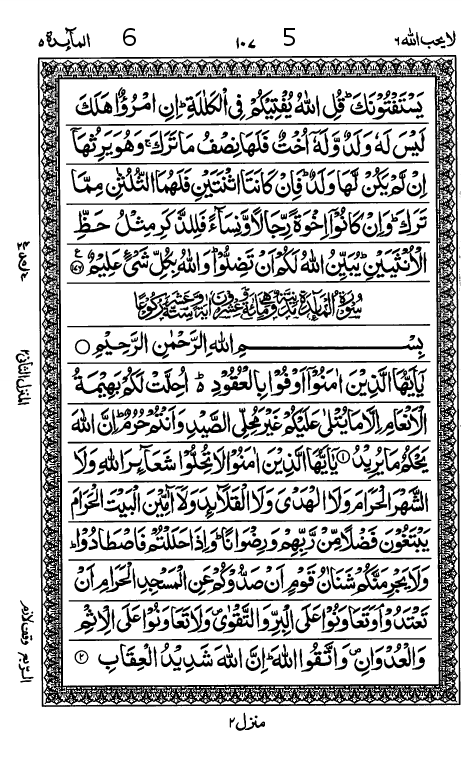 لا يحب الله ٦ 5 ١٠٧ 6 المآئدة ٥
يَسْتَفْتُوْنَكَ ؕ قُلِ اللّٰهُ يُفْتِيْكُمْ فِي الْكَلٰلَةِ ؕ اِنِ امْرُؤٌا هَلَكَ
لَيْسَ لَهٗ وَلَدٌ وَّلَهٗۤ اُخْتٌ فَلَهَا نِصْفُ مَا تَرَكَ ۚ وَهُوَ يَرِثُهَاۤ
اِنْ لَّمْ يَكُنْ لَّهَا وَلَدٌ ؕ فَاِنْ كَانَتَا اثْنَتَيْنِ فَلَهُمَا الثُّلُثٰنِ مِمَّا
تَرَكَ ؕ وَاِنْ كَانُوْۤا اِخْوَةً رِّجَالًا وَّنِسَآءً فَلِلذَّكَرِ مِثْلُ حَظِّ
الْاُنْثَيَيْنِ ؕ يُبَيِّنُ اللّٰهُ لَكُمْ اَنْ تَضِلُّوْا ؕ وَاللّٰهُ بِكُلِّ شَيْءٍ عَلِيْمٌ ۠ ﴿۱۷۶﴾
بِسْمِ اللّٰهِ الرَّحْمٰنِ الرَّحِيْمِ ○
يٰۤاَيُّهَا الَّذِيْنَ اٰمَنُوْۤا اَوْفُوْا بِالْعُقُوْدِ ؕ اُحِلَّتْ لَكُمْ بَهِيْمَةُ
الْاَنْعَامِ اِلَّا مَا يُتْلٰى عَلَيْكُمْ غَيْرَ مُحِلِّي الصَّيْدِ وَاَنْتُمْ حُرُمٌ ؕ اِنَّ اللّٰهَ
يَحْكُمُ مَا يُرِيْدُ ﴿۱﴾ يٰۤاَيُّهَا الَّذِيْنَ اٰمَنُوْا لَا تُحِلُّوْا شَعَآئِرَ اللّٰهِ وَلَا
الشَّهْرَ الْحَرَامَ وَلَا الْهَدْيَ وَلَا الْقَلَآئِدَ وَلَاۤ آٰمِّيْنَ الْبَيْتَ الْحَرَامَ
يَبْتَغُوْنَ فَضْلًا مِّنْ رَّبِّهِمْ وَرِضْوَانًا ؕ وَاِذَا حَلَلْتُمْ فَاصْطَادُوْا ؕ
وَلَا يَجْرِمَنَّكُمْ شَنَاٰنُ قَوْمٍ اَنْ صَدُّوْكُمْ عَنِ الْمَسْجِدِ الْحَرَامِ اَنْ
تَعْتَدُوْا ۘ وَتَعَاوَنُوْا عَلَى الْبِرِّ وَالتَّقْوٰى ۪ وَلَا تَعَاوَنُوْا عَلَى الْاِثْمِ
وَالْعُدْوَانِ ۪ وَاتَّقُوا اللّٰهَ ؕ اِنَّ اللّٰهَ شَدِيْدُ الْعِقَابِ ﴿۲﴾
المنزل الثانى ٢
وقف لازم
منزل ٢